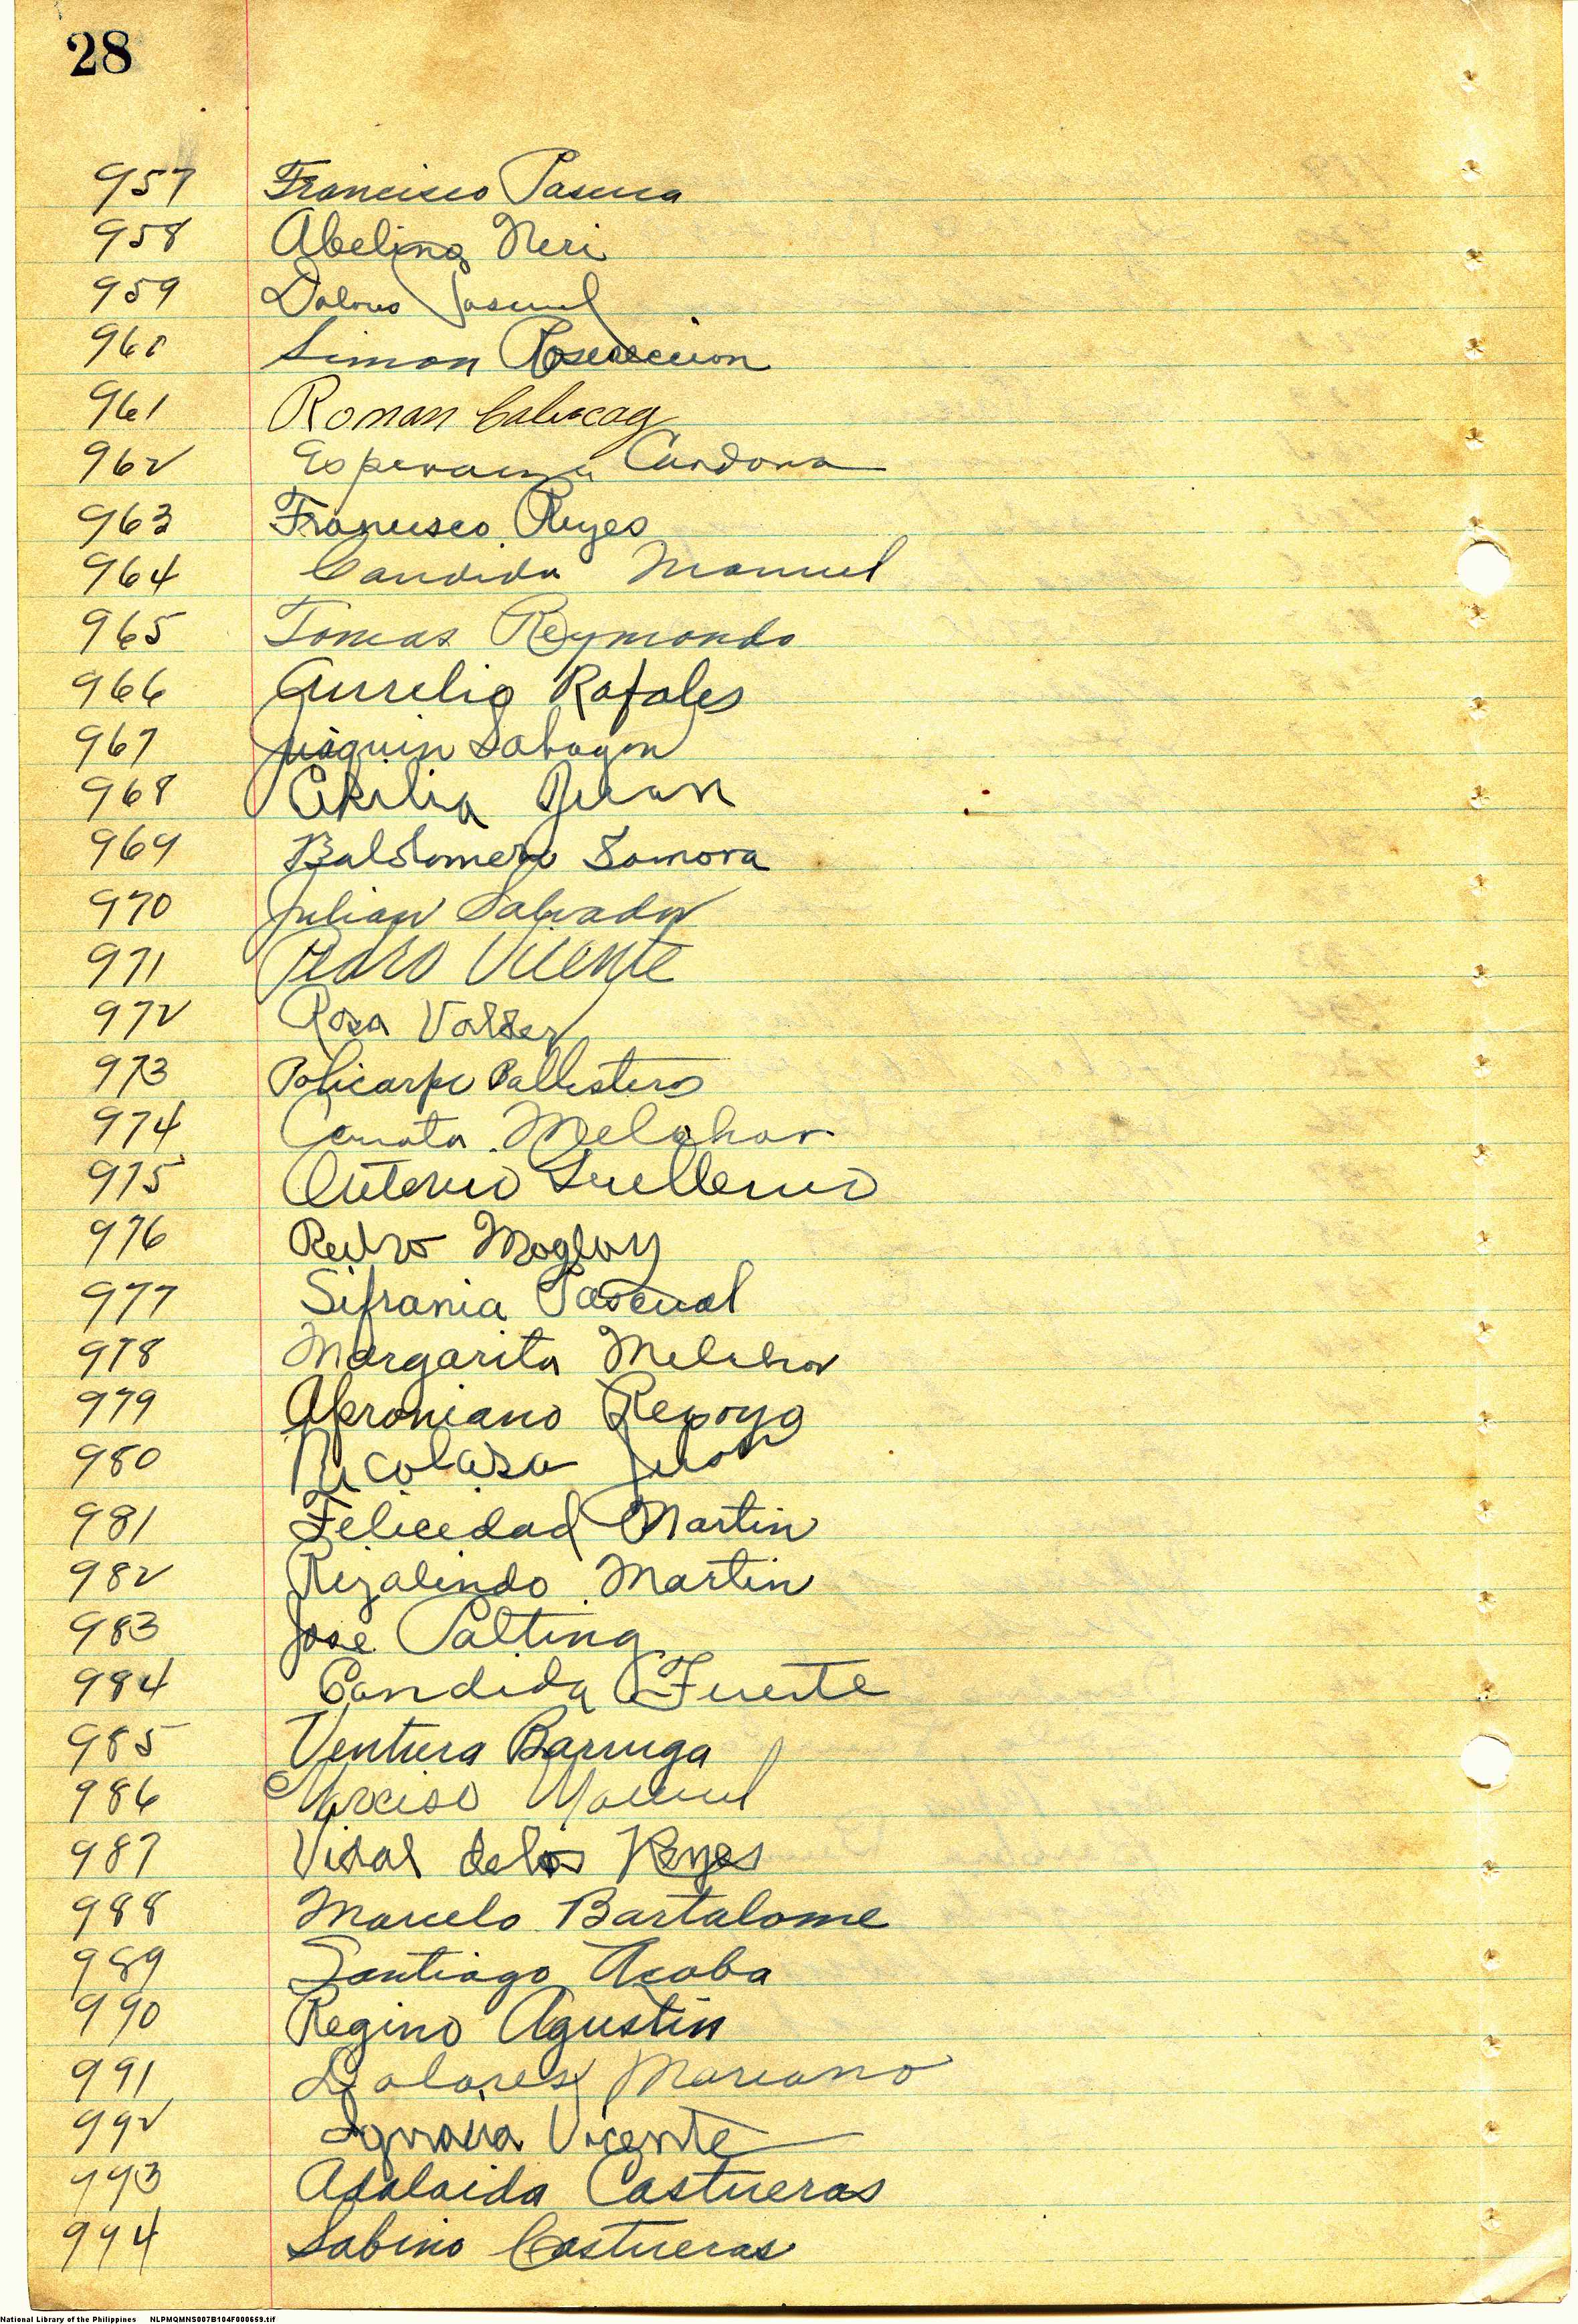 28
957 Francisco Pascua
958 Abelina Neri
959 Dolores Pascual
960 Simon
961 Roman
962 Esperanza Cardona
963 Francisco Reyes
964 Candida Manuel
965 Tomas Reymondo
966 Aurelio Rafales
967 Juaquin Sabagon
968 Cicilia Juan
969 Baldomero Samora
970 Julian Salvador
971 Pedro Vicente
972 Rosa Valdez
973 Policarpo Ballesteros
974 Melchor
975 Antonio
976 Pedro
977 Sifrania Pascual
978 Margarita Melchor
979 Aproniano Repoyo
980 Nicolasa Juan
981 Felicidad Martin
982 Rizalindo Martin
983 Jose Palting
984 Candida Fuerte
985 Ventura Barruga
986 Narciso Manuel
987 Vidal delos Reyes
988 Marcelo Bartalome
989 Santiago Acoba
990 Regino Agustin
991 Dolores Mariano
992 Ignacia Vicente
993 Adalaida Castueras
994 Sabino Castueras
National Library of the Philippines NLPMQMNS007B104F000659.tif